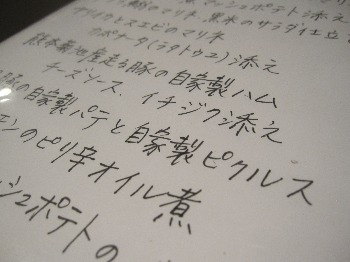 マッシュポテト添え
のマリネ、黒米のサラダ仕立
ヤリイカとスエビのマリネ
カポナータ(ラタトゥユ)添え
熊本菊池産走る豚の自家製ハム
チーズソース、イチジク添え
の自家製パテと自家製ピクルス
のピリ辛オイル煮
シュポテトの